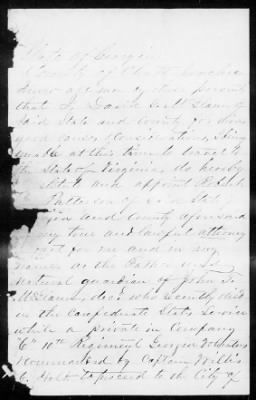 State of Georgia
County of Chattahoochee
Know all men by these presents
that I, David
said State and County for divers
good causes & considerations, & being
unable at this time to travel to
the State of Virginia, do hereby
and appoint Robert
Patterson of said State
and County aforesaid
my true and lawful attorney
for me and in my
name as the Father and
natural guardian of John T.
Williams, dec'd who recently died
in the Confederate States Service
while a private in Company
"C" 10th Regiment Georgia Volunteers
Commanded by Captain Willis
C. Holt to proceed to the City of